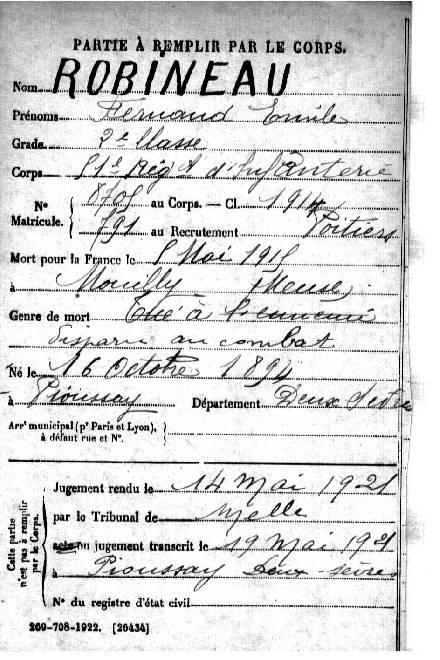 PARTIE À REMPLIR PAR LE CORPS.
Nom ROBINEAU
Prénoms Fernand Emile
Grade 2e Classe
Corps 51e Régt d'Infanterie
N° 8705 au Corps. — Cl. 1914
Matricule. 791 au Recrutement Poitiers
Mort pour la France le 5 Mai 1915
à Mouilly (Meuse)
Genre de mort Tué à l'ennemi
disparu au combat
Né le 16 Octobre 1894
à Pioussay Département Deux Sèvres
Arrt municipal (pr Paris et Lyon),
à défaut rue et N°.
Cette partie n'est pas à remplir par le Corps.
Jugement rendu le 14 Mai 1921
par le Tribunal de Melle
acte ou jugement transcrit le 19 Mai 1921
à Pioussay Deux-Sèvres
N° du registre d'état civil
269-708-1922. [26434]